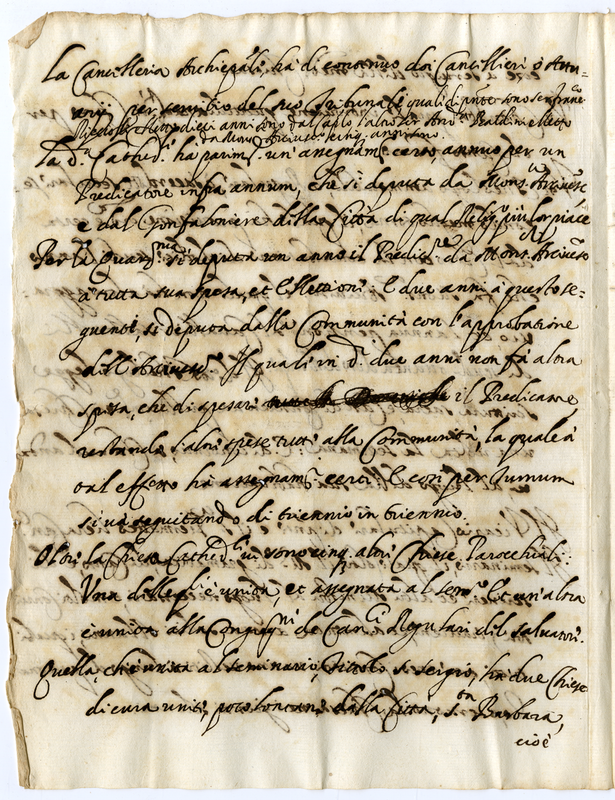 La Cancilleria Archiepāli, ha di continuo doi Cancillieri ò Attu-
arij per servitio del suo Tribunale quali di pñte sono ser Franc.o
da Mons.r Arcivesc.
La d.a Cathed. ha parim. un' asegnam. certo annuo per un
Predicatore infra annum, che si deputa da Mons.r Arcivesc.
e dal Confaloniere della Città di qual Relig. più lor piace
Per la Quares.ma si deputa un anno il Predic.re da Mons.r Arcivesco
à tutta sua spesa, et Elettione: E due anni à questo se-
guenti, si deputa dalla Communità con l'approbatione
dell' Arcivesc. Il quale in d.i due anni non fà altra
spesa, che di spesare il Predicatore,
restando l'altre spese tutte alla Communità, la quale à
tal effetto hà assegnam. certi: E così per turnum
si và seguitando di triennio in triennio.
Oltre la Chiesa Cathed.le vi sono cinq. altre Chiese Parochiali:
Una delle q.li è unita, et assegnata al sem.o Et un' altra
è unita alla Congreg.ni de Can.ci Regulari del Salvatore.
Quella che è unita al seminario, titolo s. Sergio, hà due Chiese
di cura unite, poco lontane dalla Città, s.ta Barbara,
cioè